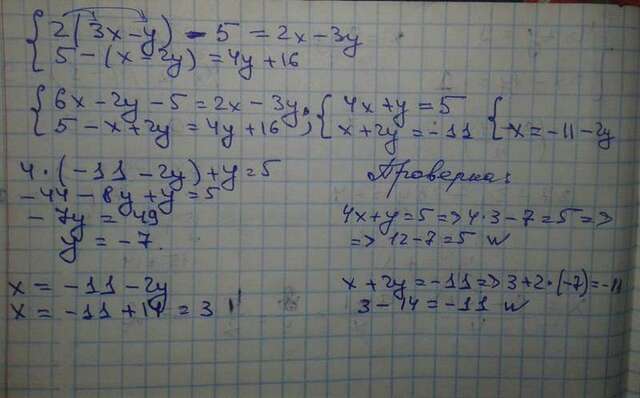 { 2(3x-y) - 5 = 2x - 3y
5 - (x - 2y) = 4y + 16
{ 6x - 2y - 5 = 2x - 3y; { 4x + y = 5
5 - x + 2y = 4y + 16; { x + 2y = -11 { x = -11 - 2y
4 · (-11 - 2y) + y = 5
-44 - 8y + y = 5
-7y = 49
y = -7.
x = -11 - 2y
x = -11 + 14 = 3
Проверка:
4x + y = 5 => 4·3 - 7 = 5 =>
=> 12 - 7 = 5 и
x + 2y = -11 => 3 + 2·(-7) = -11
3 - 14 = -11 и